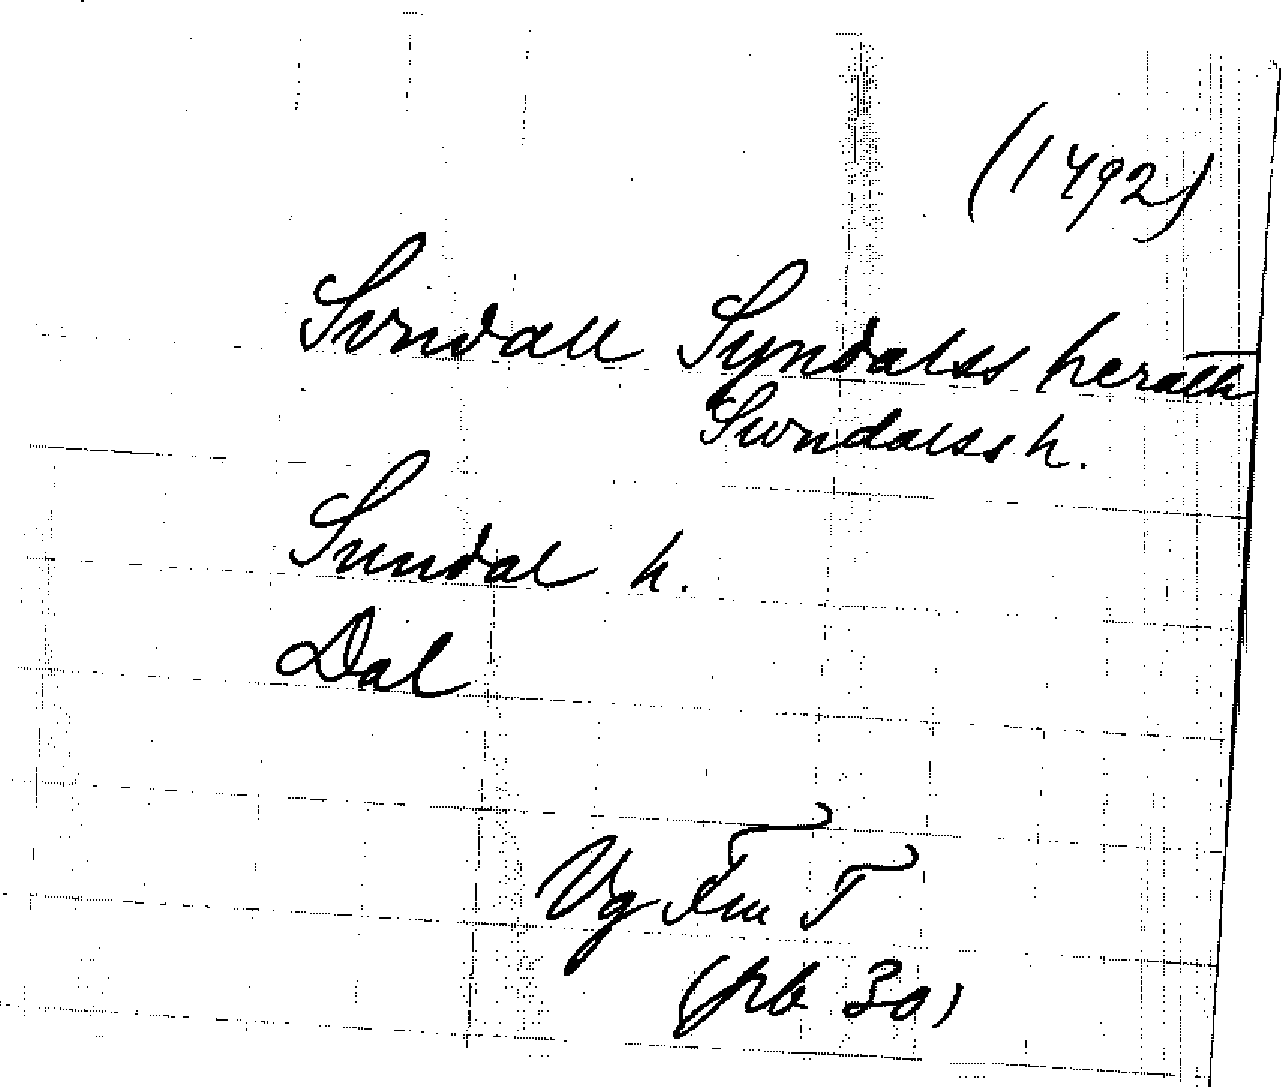 (1492)
Svndall Syndalss herath
Swndalss h.
Sundal h.
Dal
Vg Fm T
(pb 30)